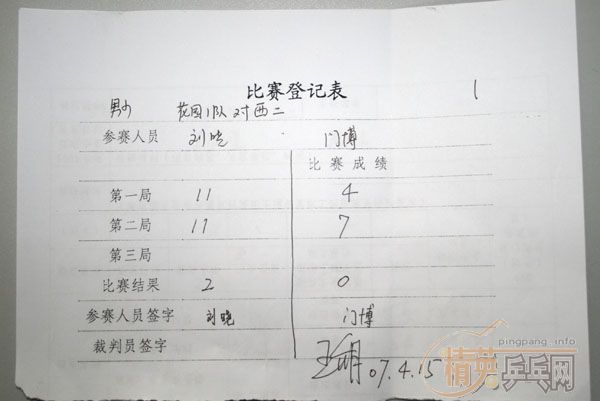 比赛登记表 1
男 花园1队对西二
参赛人员 刘晓 门博
比赛成绩
第一局 11 4
第二局 11 7
第三局
比赛结果 2 0
参赛人员签字 刘晓 门博
裁判员签字 07.4.15
pingpang.info
精英乒乓网